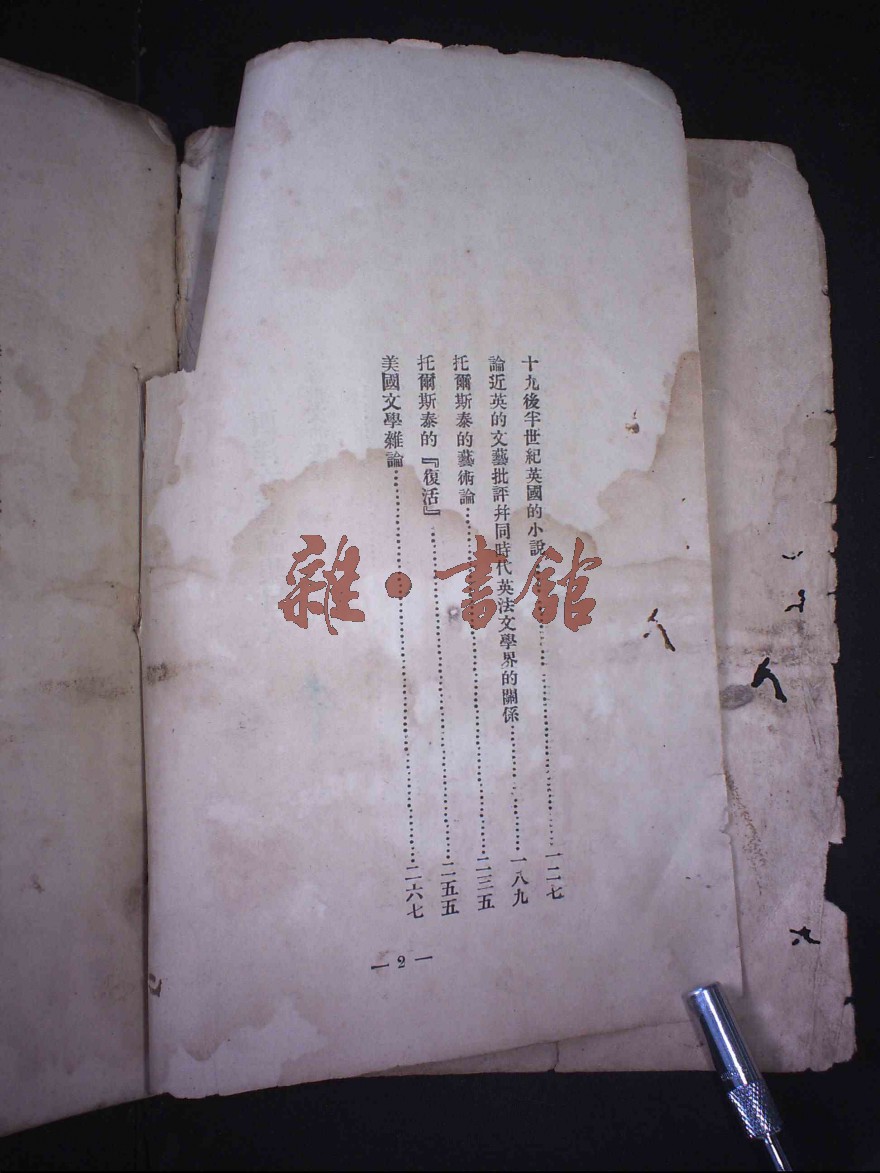 十九後半世紀英國的小說……一二七
論近英的文藝批評幷同時代英法文學界的關係……一八九
托爾斯泰的藝術論……二三五
托爾斯泰的『復活』……二五五
美國文學雜論……二六七
— 2 —
雜·書館